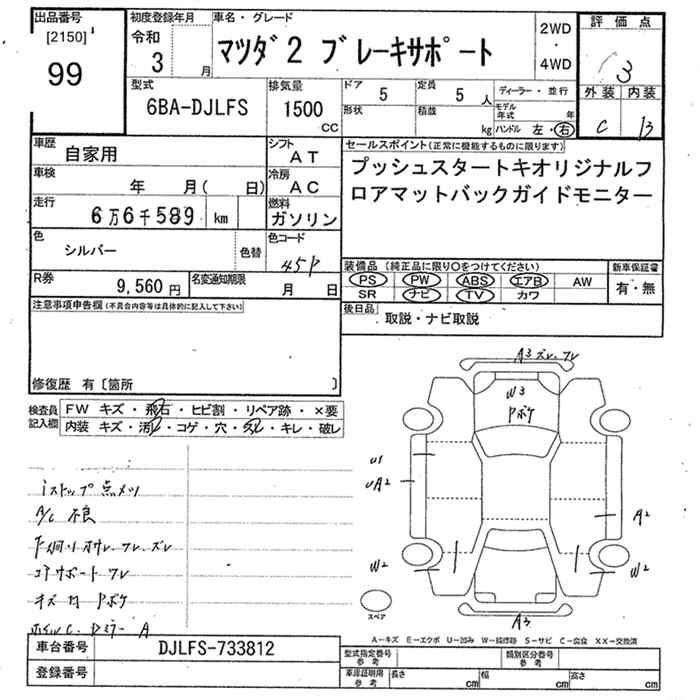 出品番号 初度登録年月 車名・グレード 評価点
[2150] 令和 2WD
99 3 月 マツダ2 ブレーキサポート ・ 3
4WD
外装 内装
型式 排気量 ドア 定員 ディーラー・並行 C B
6BA-DJLFS 1500 5 5 人 モデル年式 年
CC 形状 積載 kg ハンドル 左・右
車歴 シフト セールスポイント(正常に機能するものに限ります)
自家用 AT プッシュスタートキオリジナルフ
車検 年 月( 日) 冷房 AC ロアマットバックガイドモニター
走行 燃料
6万6千589 km ガソリン
色 シルバー 色替 色コード 45P
装備品(純正品に限り○をつけてください) 新車保証書
PS PW ABS エアB AW 有・無
SR ナビ TV カワ
R券 9,560円 名変通知期限 月 日
後日品 取説・ナビ取説
注意事項申告欄(不具合内容等は具体的に記入して下さい)
修復歴 有〔箇所 〕
検査員記入欄 FW キズ・飛石・ヒビ割・リペア跡・×要
内装 キズ・汚れ・コゲ・穴・スレ・キレ・破レ
A3 ズレ、ワレ
W3
Pボケ
U1
UA2
A2
W2
W2
A3
スペア
iストップ点メツ
A/C 不良
コアサポート ワレ
A-キズ E-エクボ U-凹み W-補修跡 S-サビ C-腐食 XX-交換済
車台番号 DJLFS-733812 型式指定番号 参考 類別区分番号 参考
登録番号 車庫証明用 参考 長さ cm 幅 cm 高さ cm